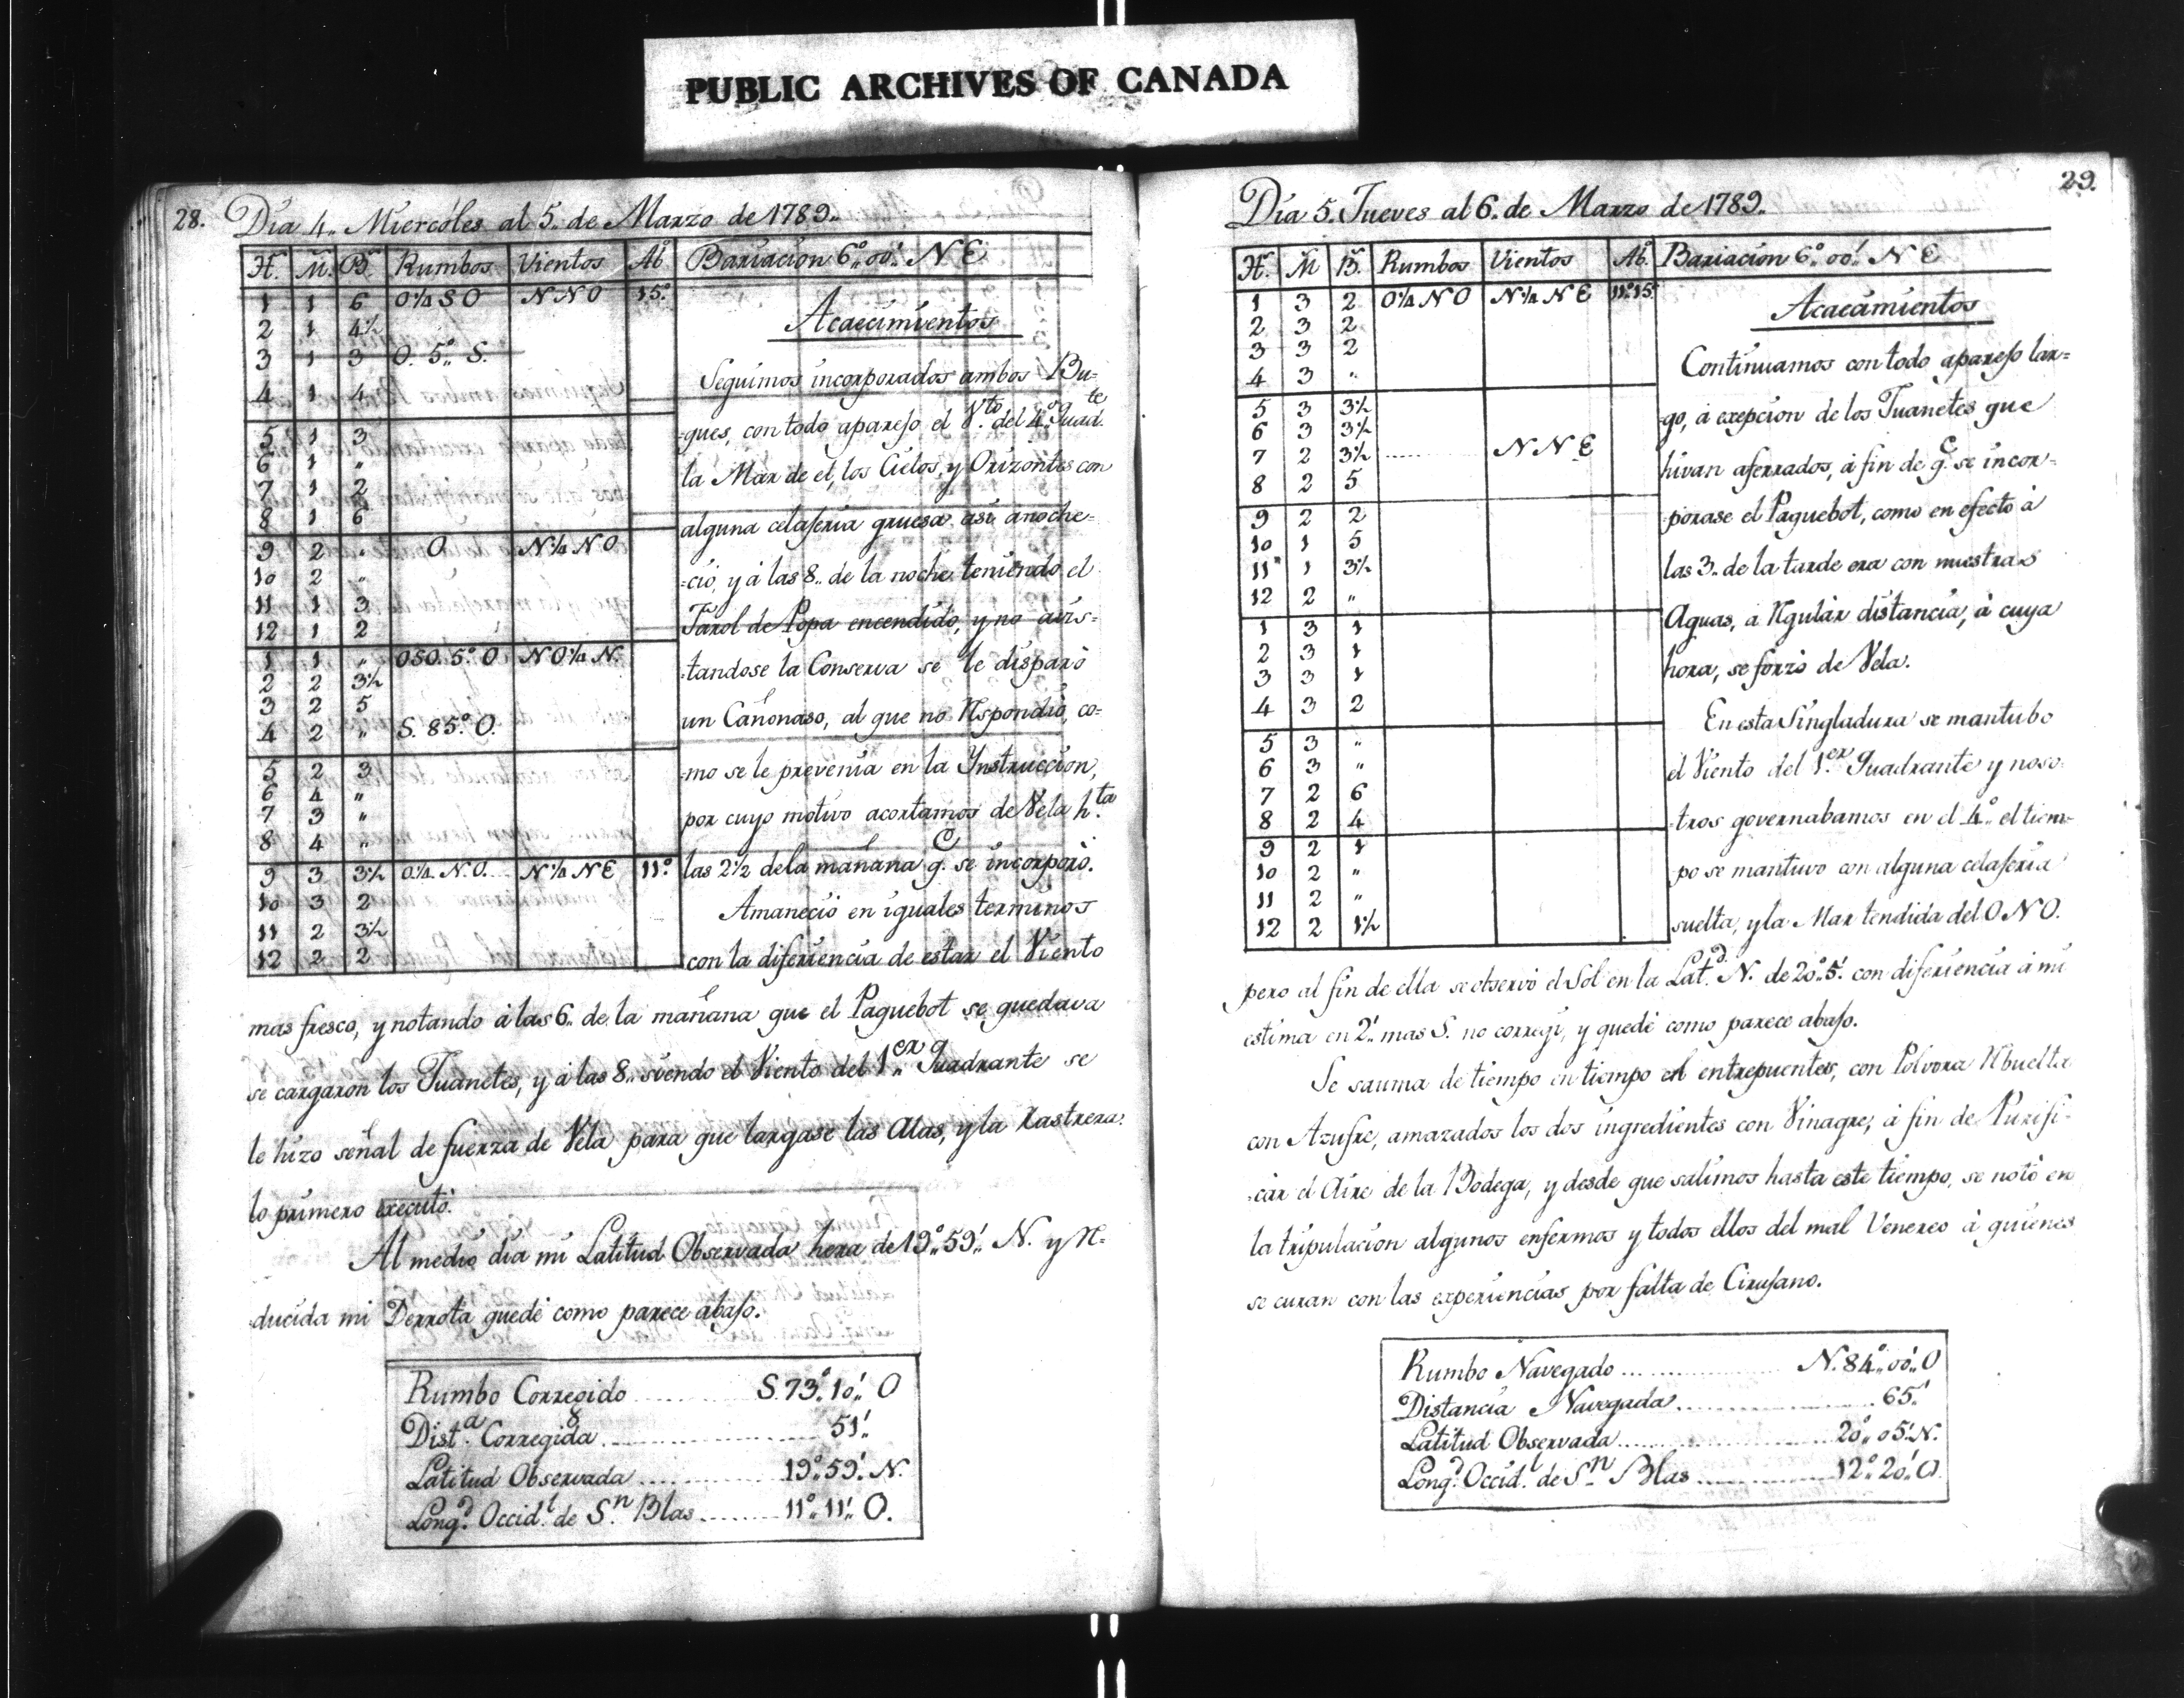 PUBLIC ARCHIVES OF CANADA
28. Día 4,, Miercóles al 5,, de Marzo de 1789,,
H.s M. B. Rumbos Vientos Ab.o Bariacion 6°,,00',, N E
1 1 6 O¼SO NNO 15°
2 1 4½
3 1 3 O. 5°,, S.
4 1 4
5 1 3
6 1 "
7 1 2
8 1 6
9 2 " O N¼NO
10 2 "
11 1 3
12 1 2
1 1 " OSO. 5° O NO¼N.
2 2 3½
3 2 5
4 2 " S. 85° O.
5 2 3
6 4 "
7 3 "
8 4 "
9 3 3½ O¼.N.O. N¼NE 11°
10 3 2
11 2 3½
12 2 2
Acaecimientos
Seguimos incorporados ambos Bu-
-ques, con todo aparejo el V.to del 4.o Quad.te
la Mar de el, los Cielos, y Orizontes con
alguna celajeria gruesa asi anoche-
-ció, y á las 8,, de la noche teniendo el
Farol de Popa encendido, y no avis-
-tandose la Conserva se le disparó
un Cañonaso, al que no Rspondió, co-
-mo se le prevenia en la Ynstruccion,
por cuyo motivo acortamos de Vela h.ta
las 2½ de la mañana q.e se incorporó.
Amaneció en iguales terminos
con la diferiencia de estar el Viento
mas fresco, y notando á las 6,, de la mañana que el Paquebot se quedava
se cargaron los Juanetes, y á las 8,, siendo el Viento del 1.er Quadrante se
le hizo señal de fuerza de Vela para que largase las Alas, y la Rastrera:
lo primero executó.
Al medio dia mi Latitud Observada hera de 19°,,59',, N. y R-
-ducida mi Derrota quedé como parece abajo.
Rumbo Corregido ........ S. 73°,,10',, O
Dist.a Corregida ........ 51',,
Latitud Observada ........ 19°,,59',, N.
Long.d Occid.l de S.n Blas ........ 11°,,11',, O.
29.
Día 5,, Jueves al 6,, de Marzo de 1789,,
H.s M B. Rumbos Vientos Ab.o Bariacion 6°,,00',, N E
1 3 2 O¼NO N¼NE 11°15'
2 3 2
3 3 2
4 3 "
5 3 3½
6 3 3½
7 2 3½ ........ NNE
8 2 5
9 2 2
10 1 5
11 1 3½
12 2 "
1 3 1
2 3 1
3 3 1
4 3 2
5 3 "
6 3 "
7 2 6
8 2 4
9 2 1
10 2 "
11 2 "
12 2 1½
Acaecimientos
Continuamos con todo aparejo lar=
go, á exepcion de los Juanetes que
hivan aferrados, á fin de q.e se incor-
-porase el Paquebot, como en efecto á
las 3,, de la tarde era con nuestras
Aguas, á Rgular distancia, á cuya
hora, se forzó de Vela.
En esta Singladura se mantubo
el Viento del 1.er Quadrante y noso-
-tros governabamos en el 4.o el tiem-
po se mantuvo con alguna celajeria
suelta, y la Mar tendida del ONO.
pero al fin de ella se observó el Sol en la Lat.d N. de 20°,,5' con diferiencia á mi
estima en 2',, mas S. no corregí, y quedé como parece abajo.
Se sauma de tiempo en tiempo el entrepuentes, con Polvora Rbuelta
con Azufre, amazados los dos ingredientes con Vinagre, á fin de Purifi-
-car el Aire de la Bodega, y desde que salimos hasta este tiempo, se notó en
la tripulacion algunos enfermos y todos ellos del mal Venereo á quienes
se curan con las experiencias por falta de Cirujano.
Rumbo Navegado ........ N. 84°,,00',, O
Distancia Navegada ........ 65',,
Latitud Observada ........ 20°,,05',,N.
Long.d Occid.l de S.n Blas ........ 12°,,20',,O.